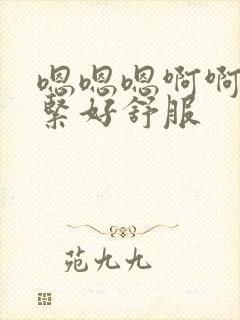 嗯嗯嗯啊啊
紧好舒服
苑九九